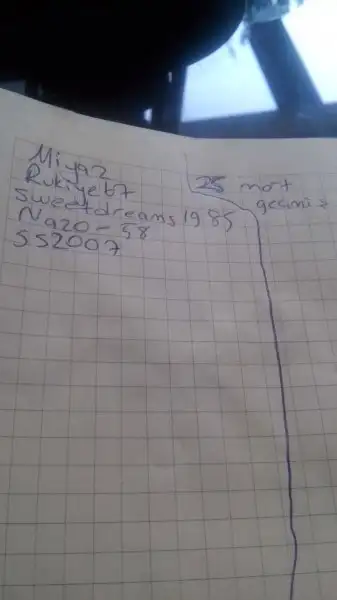 Miyaz
Rukiyeb7
Sweetdreams 1985
Nazo-58
SS2007
25 mart
geçmiş